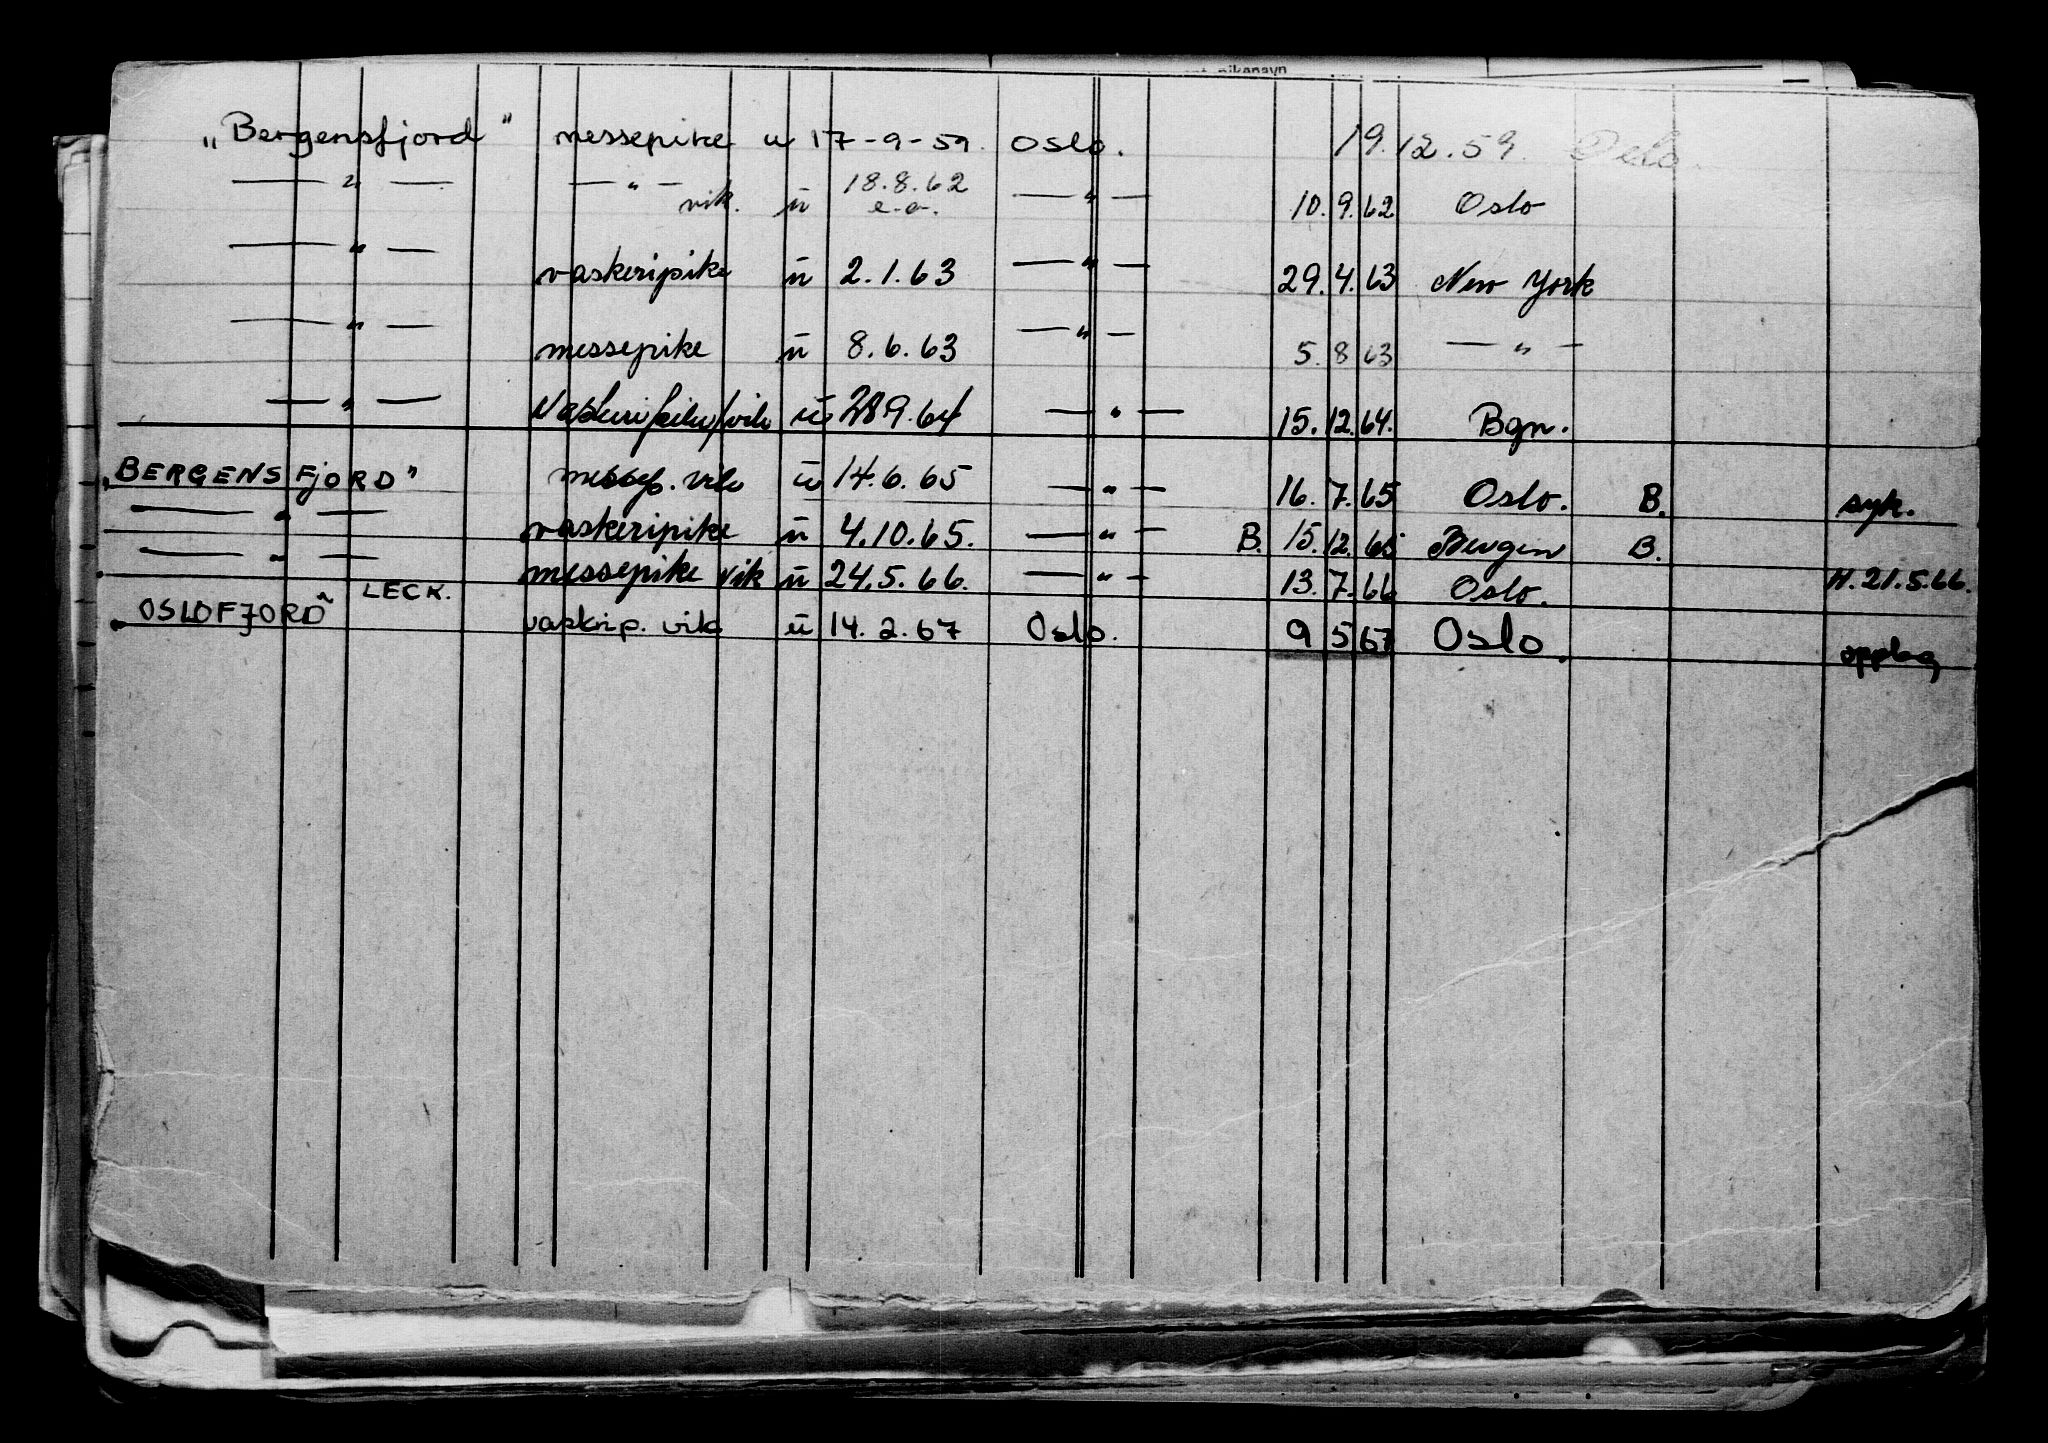 pikenavn
„Bergensfjord" messepike u 17-9-59. Oslo. 19.12.59. Oslo.
— " — — " — vik. u 18.8.62 e.o. — " — 10.9.62 Oslo
— " — vaskeripike u 2.1.63 — " — 29.4.63 New York
— " — messepike u 8.6.63 — " — 5.8.63 — " —
— " — vaskeripike/vik u 28.9.64 — " — 15.12.64. Bgn.
„BERGENSFJORD" messep. vik u 14.6.65 — " — 16.7.65 Oslo. B. syk.
— " — vaskeripike u 4.10.65. — " — B. 15.12.65 Bergen B.
— " — messepike vik u 24.5.66. — " — 13.7.66 Oslo. H.21.5.66.
OSLOFJORD" LECK. vaskrip. vik u 14.2.67 Oslo. 9 5 67 Oslo. opplag